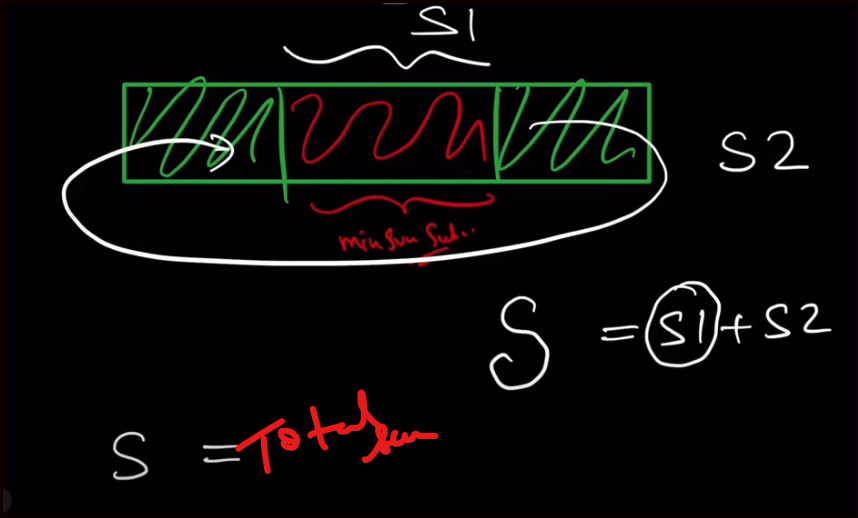 S1
S2
min sum Sub..
S = S1 + S2
S = Total sum